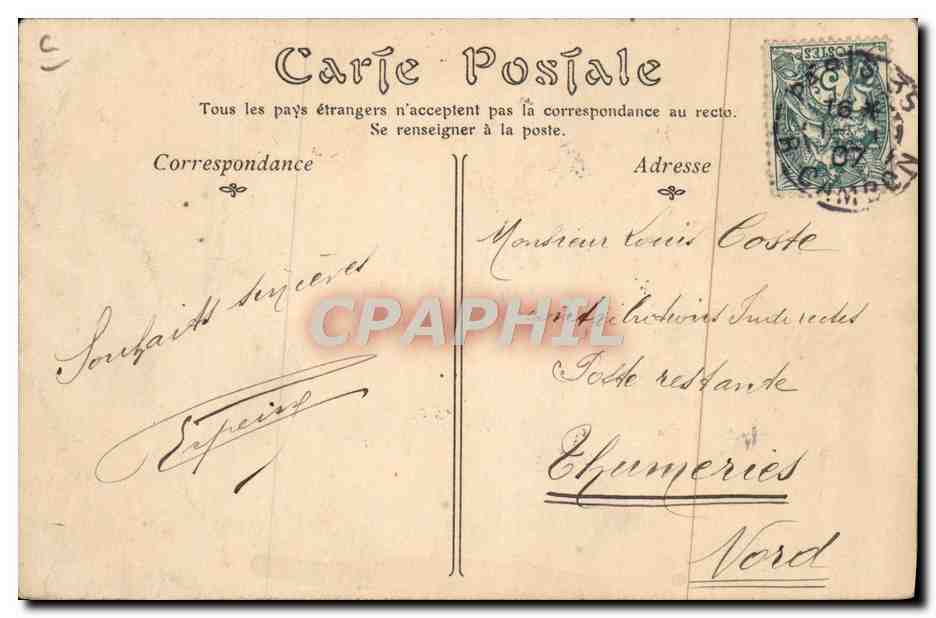 C
Carte Postale
Tous les pays étrangers n'acceptent pas la correspondance au recto.
Se renseigner à la poste.
Correspondance
Adresse
POSTES
PARIS
16 *
07
CAMBON
Souhaits sincères
Monsieur Louis Coste
Contributions Indirectes
Poste restante
Thumeries
Nord
CPAPHIL